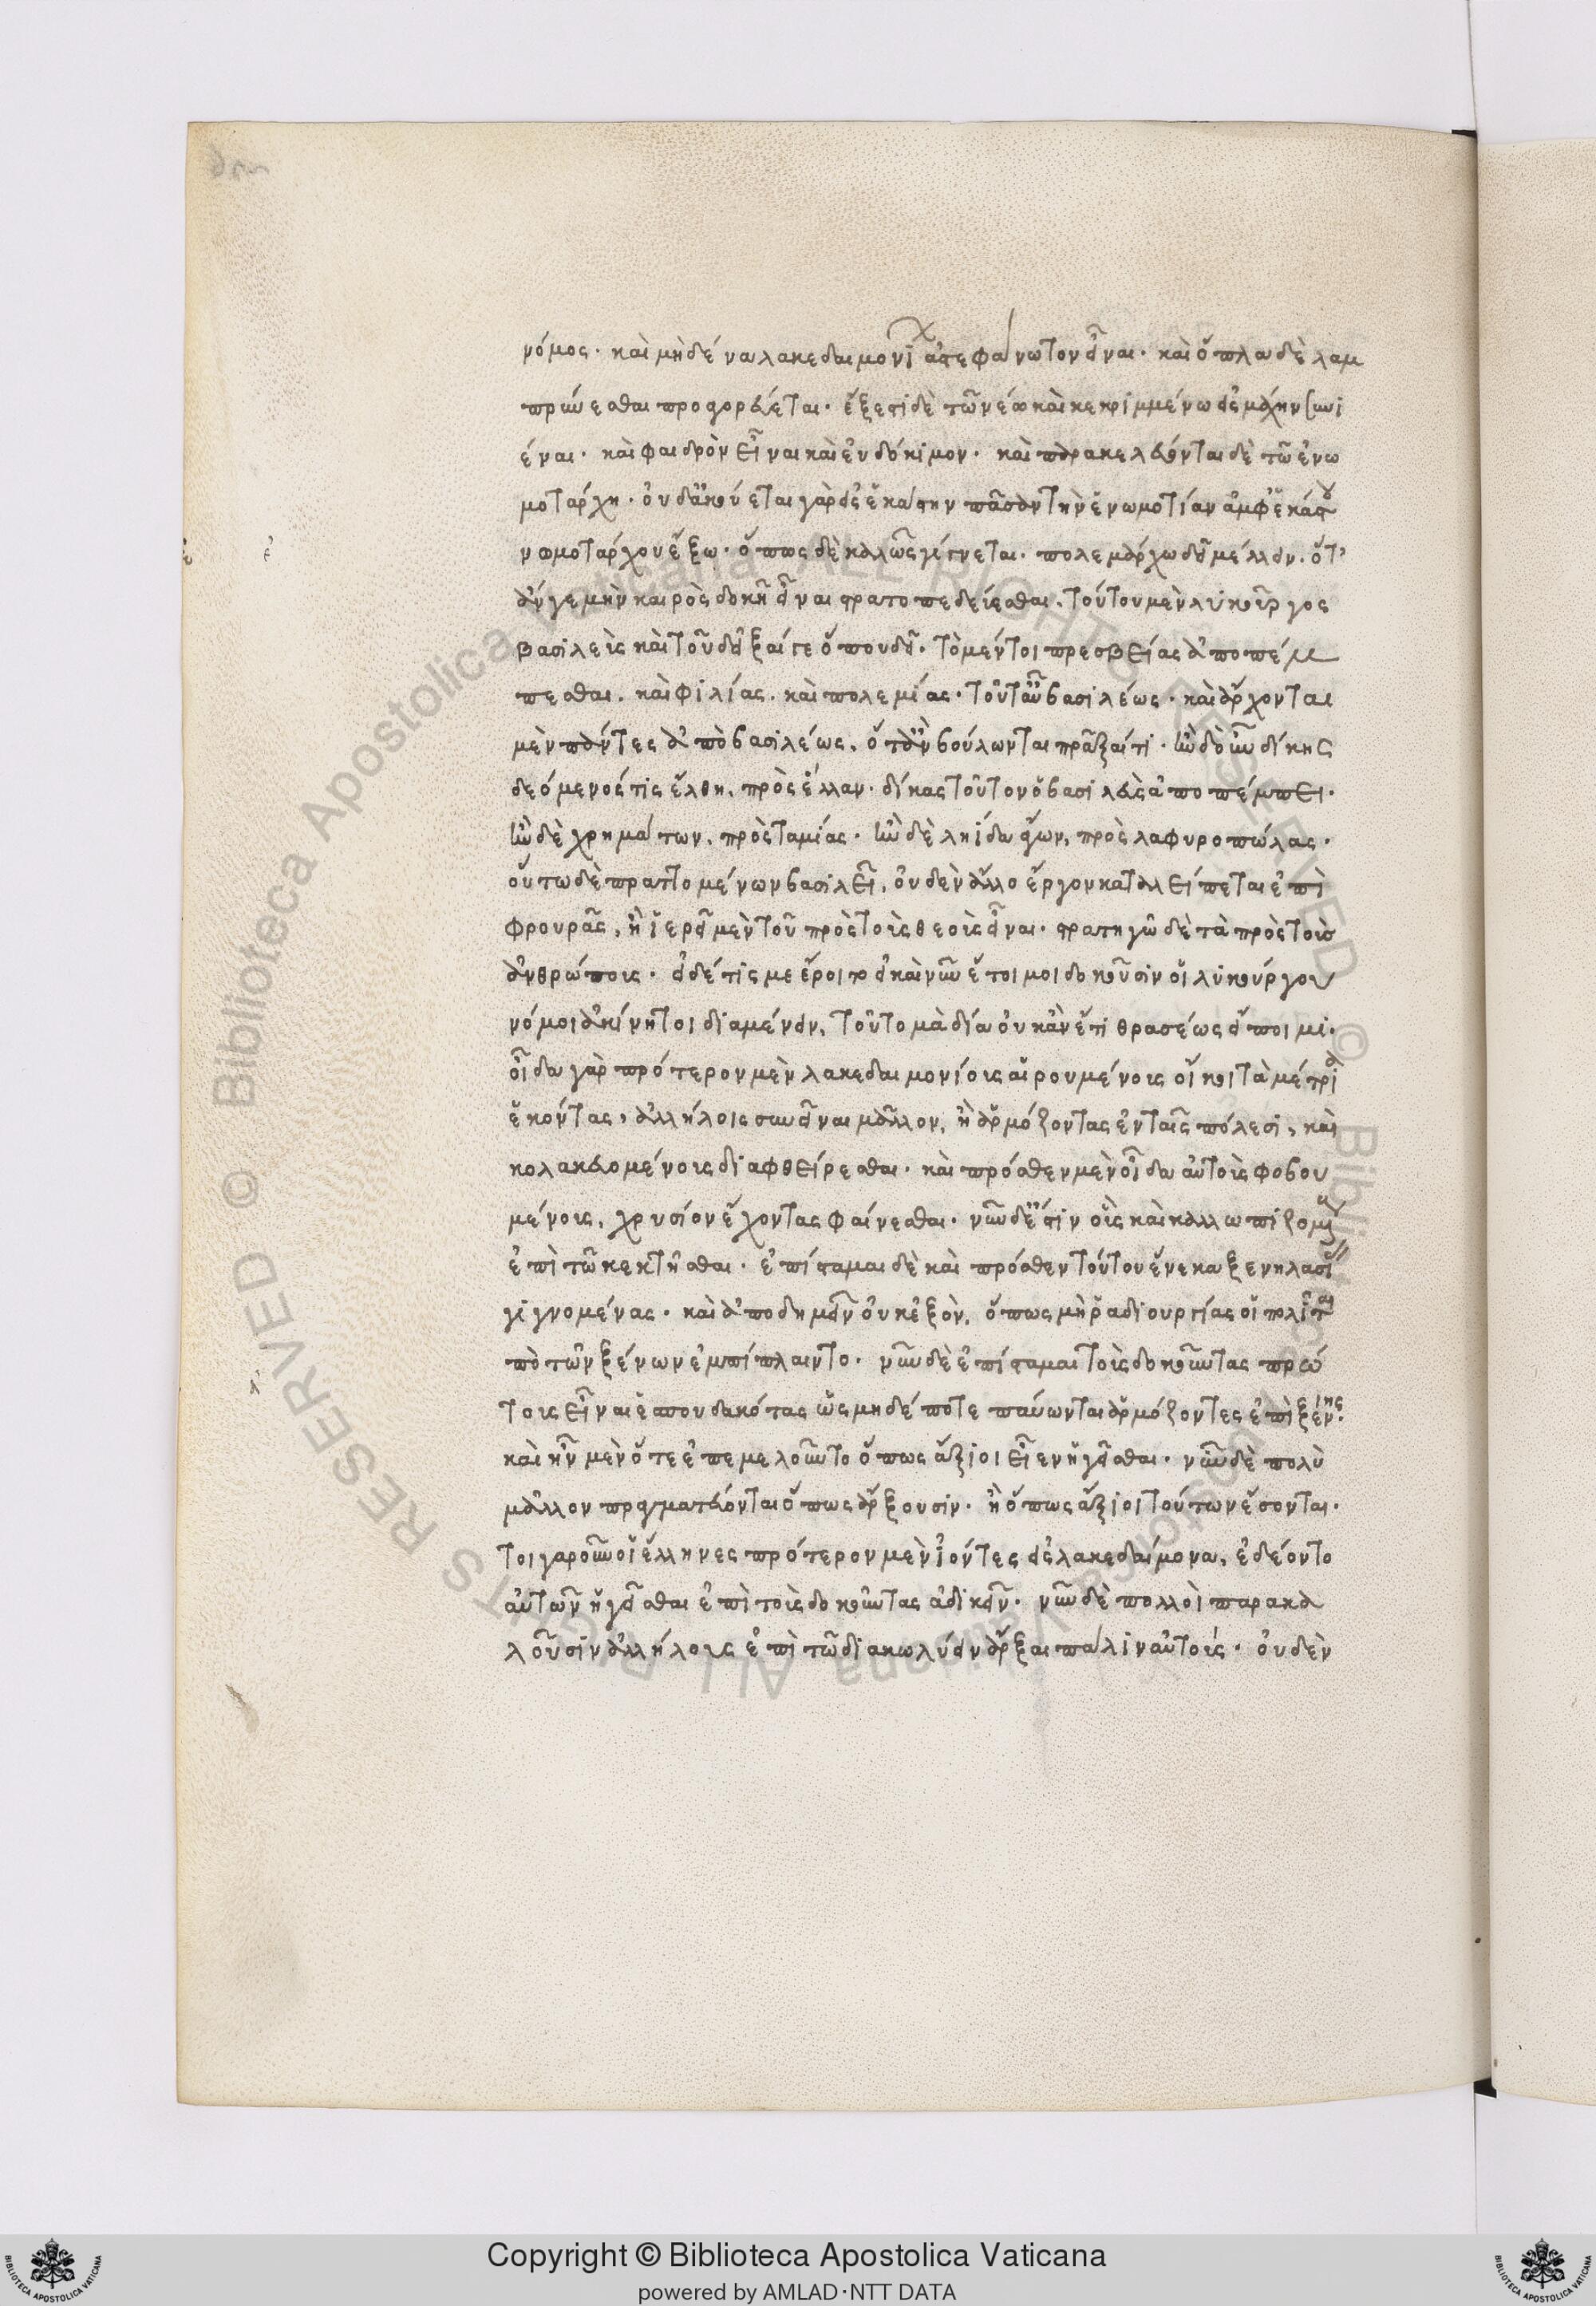 νόμος· καὶ μηδένα λακεδαιμονίων ἀστεφάνωτον εἶναι· καὶ ὅπλα δὲ λαμ
πρύνεσθαι προαγορεύεται· ἔξεστι δὲ τῶ νέω καὶ κεκριμμένω εἰς μάχην συνι
έναι· καὶ φαιδρὸν εἶναι καὶ εὐδόκιμον· καὶ παρακελεύονται δὲ τῶ ἐνω
μοτάρχη· οὐδ' ἀκούεται γὰρ εἰς ἑκάστην πᾶσαν τὴν ἐνωμοτίαν ἀμφ' ἑκάστου
νωμοτάρχου ἔξω· ὅπως δὲ καλῶς γίγνεται· πολεμάρχω δεῖ μέλλειν· ὅτ'
ἂν γε μὴν καιρὸς δοκῆ εἶναι στρατοπεδεύεσθαι, τούτου μὲν λυκοῦργος
βασιλεὺς καὶ τοῦ δεῖξαί γε ὅπου δεῖ· τὸ μέντοι πρεσβείας ἀποπέμ
πεσθαι. καὶ φιλίας. καὶ πολεμίας· τοῦτ' αὖ βασιλέως· καὶ ἄρχονται
μὲν πάντες ἀπὸ βασιλέως, ὅτ' ἂν βούλωνται πρᾶξαί τι· ἢν δ' οὖν δίκης
δεόμενός τις ἔλθη, πρὸς ἑλλαν δίκας τοῦτον ὁ βασιλεὺς ἀποπέμπει·
ἢν δὲ χρημάτων, πρὸς ταμίας· ἢν δὲ ληίδα ἄγων, πρὸς λαφυροπώλας·
οὕτω δὲ πραττομένων βασιλεῖ, οὐδὲν ἄλλο ἔργον καταλείπεται ἐπὶ
φρουρᾶς, ἢ ἱερεῖ μὲν τοῦ πρὸς τοὺς θεοὺς εἶναι· στρατηγῶ δὲ τὰ πρὸς τοὺς
ἀνθρώπους· εἰ δέ τίς με ἔροιτο εἰ καὶ νῦν ἔτοιμοι δοκοῦσιν οἱ λυκούργου
νόμοι ἀκίνητοι διαμένειν, τοῦτο μὰ δία οὐκ ἂν ἔτι θρασέως εἴποιμι·
οἶδα γὰρ πρότερον μὲν λακεδαιμονίους αἱρουμένους οἴκοι τὰ μέτρια
ἔχοντας, ἀλλήλοις συνεῖναι μᾶλλον, ἢ ἁρμόζοντας ἐν ταῖς πόλεσι, καὶ
κολακευομένους διαφθείρεσθαι· καὶ πρόσθεν μὲν οἶδα αὐτοὺς φοβου
μένους, χρυσίον ἔχοντας φαίνεσθαι· νῦν δ' ἔστιν οὓς καὶ καλλωπιζομένους
ἐπὶ τῶ κεκτῆσθαι· ἐπίσταμαι δὲ καὶ πρόσθεν τούτου ἕνεκα ξενηλασίας
γιγνομένας· καὶ ἀποδημεῖν οὐκ ἐξὸν, ὅπως μὴ ῥαδιουργίας οἱ πολῖται
πὸ τῶν ξένων ἐμπίπλαιντο· νῦν δὲ ἐπίσταμαι τοὺς δοκοῦντας πρώ
τους εἶναι ἐσπουδακότας ὡς μηδέποτε παύωνται ἁρμόζοντες ἐπὶ ξένης·
καὶ ἦν μὲν ὅτε ἐπεμελοῦντο ὅπως ἄξιοι εἶεν ἡγεῖσθαι· νῦν δὲ πολὺ
μᾶλλον πραγματεύονται ὅπως ἄρξουσιν· ἢ ὅπως ἄξιοι τούτων ἔσονται·
τοιγαροῦν οἱ ἕλληνες πρότερον μὲν ἰόντες εἰς λακεδαίμονα, ἐδέοντο
αὐτῶν ἡγεῖσθαι ἐπὶ τοὺς δοκοῦντας ἀδικεῖν· νῦν δὲ πολλοὶ παρακα
λοῦσιν ἀλλήλους ἐπὶ τῶ διακωλύειν ἄρξαι πάλιν αὐτούς· οὐδὲν